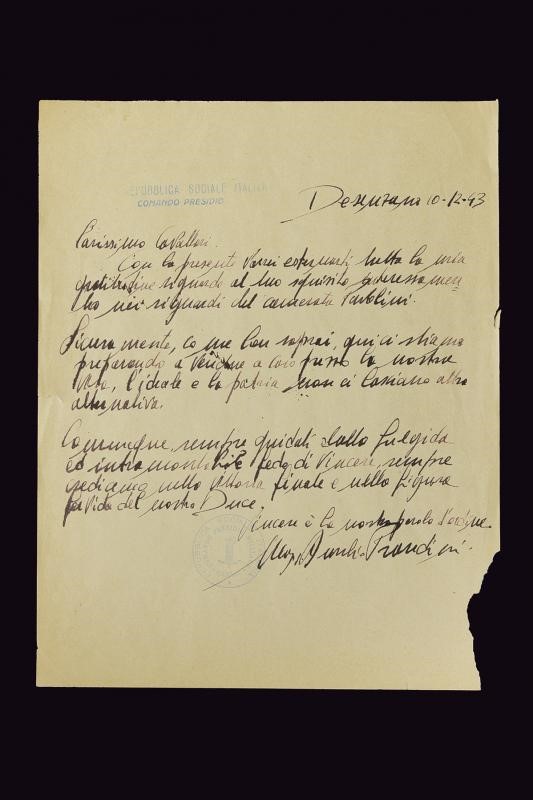 REPUBBLICA SOCIALE ITALIANA
COMANDO PRESIDIO
Desenzano 10-12-43
Carissimo Cavallari.
Con la presente vorrei esternarti tutta la mia
gratitudine riguardo al tuo squisito interessamen=
to nei riguardi del camerata
Sicuramente, come ben saprai, qui ci stiamo
preparando a vendere a caro prezzo la nostra
vita, l'ideale e la patria non ci lasciano altra
alternativa.
Comunque, sempre guidati dalla fulgida
ed intramontabile fede di Vincere, sempre
crediamo nella vittoria finale e nella figura
del nostro Duce.
Vincere è la nostra parola d'ordine.